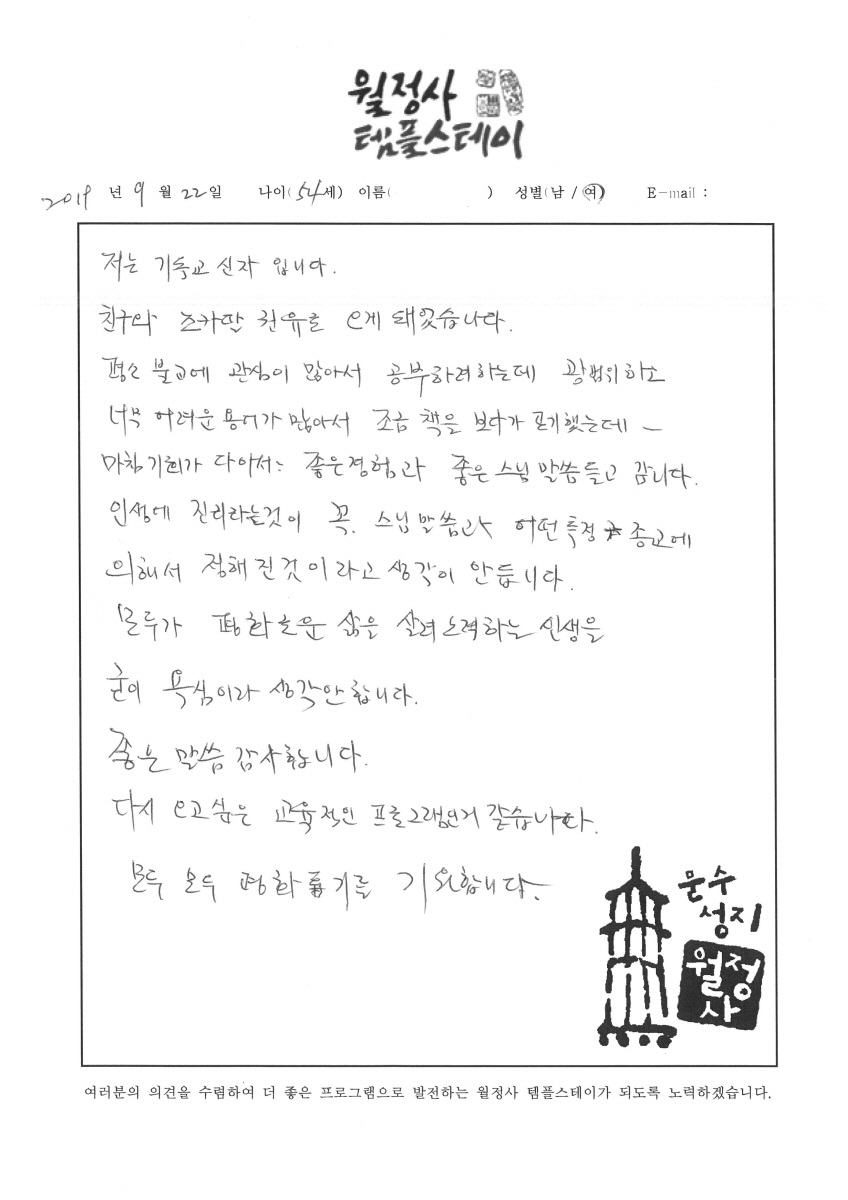 월정사
템플스테이
2019 년 9 월 22 일 나이( 54 세) 이름( ) 성별(남 / 여) E-mail :
저는 기독교 신자 입니다.
친구의 조카딸 권유로 오게 돼었습니다.
평소 불교에 관심이 많아서 공부하려하는데 광범위하고
너무 어려운 용어가 많아서 조금 책을 보다가 포기했는데 ~
마침 기회가 다아서 좋은경험과 좋은 스님 말씀듣고 갑니다.
인생에 진리라는것이 꼭. 스님말씀과 어떤 특정 종교에
의해서 정해진것 이라고 생각이 안듭니다.
모두가 평화로운 삶을 살려 노력하는 인생을
굳이 욕심이라 생각안합니다.
좋은 말씀 감사합니다.
다시 오고싶은 교육적인 프로그램인거 같습니다.
모두 모두 평화롭기를 기원합니다.
문수
성지
월정
사
여러분의 의견을 수렴하여 더 좋은 프로그램으로 발전하는 월정사 템플스테이가 되도록 노력하겠습니다.